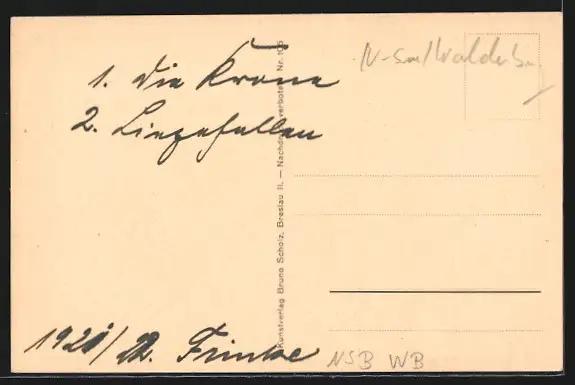 1. Die Krone
2. Liegehallen
N-Sal/Waldenb.
Kunstverlag Bruno Scholz, Breslau II. — Nachdruck verboten Nr. 105
NSB WB